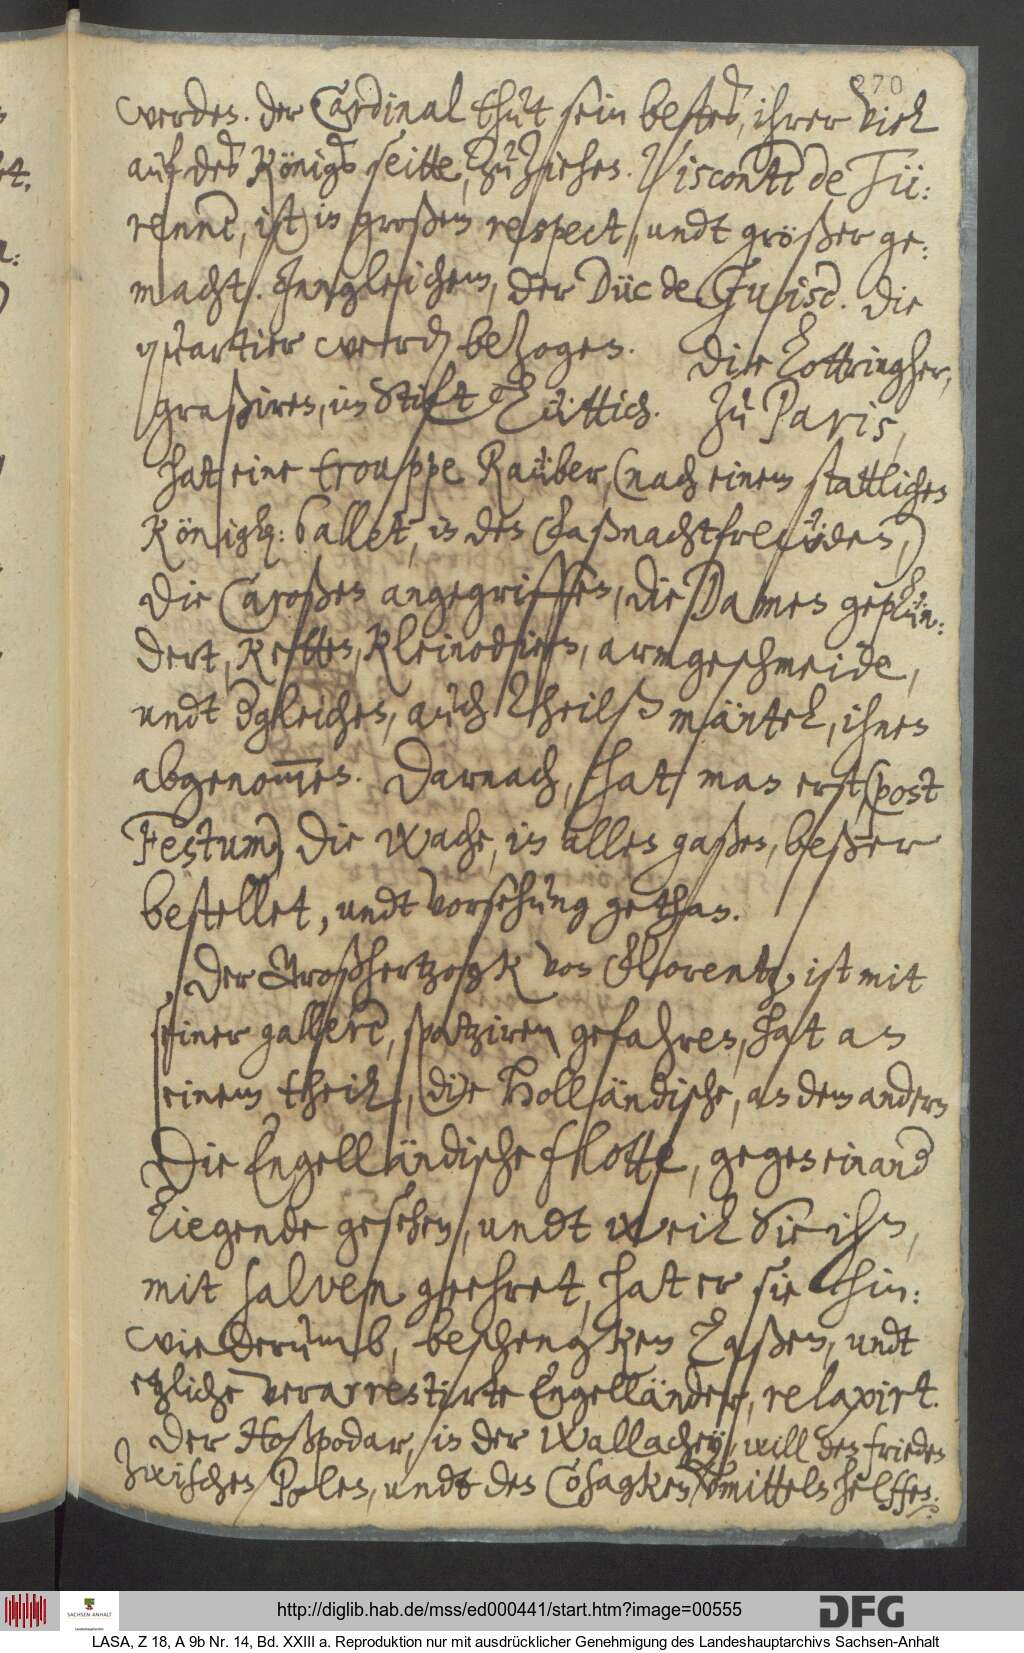 270
werden. der Cardinal thut sein bestes, ihrer viel
auf des Königs seitte, zu ziehen. Visconte de Tü:
renne, ist in großem respect, undt größer ge:
macht. Jngleichem, der Düc de Guise. Die
quartier werden bezogen. Die Lottringher,
graßiren, im Stift Lüttich. Zu Paris,
hat eine trouppe Raüber, (nach einem stattlichen
Königl: ballet, in den faßnachtfreẅden,)
die Caroßen angegriffen, die Dames geplün:
dert, Ketten, Kleinodien, armgeschmeide,
undt dergleichen, auch theilß mäntel, ihnen
abgenommen. Darnach, hat man erst (post
Festum) die wache, in allen gaßen, beßer
bestellet, undt vorsehung gethan.
Der Großhertzogk von Florentz, ist mit
seiner gallere, spatziren gefahren, hat an
einem theil, die Holländische, an dem andern
Die Engelländische flotte, gegen einander
liegende gesehen, undt weil Sie ihn,
mit salven geehret, hat er sie hin:
wiederumb, beschengken laßen, undt
etzliche verarrestirte Engelländer, relaxirt.
Der Hoßpodar, in der Wallachey, will den frieden
zwischen Polen, undt den Cosagken vermitteln helffen.
http://diglib.hab.de/mss/ed000441/start.htm?image=00555
SACHSEN-ANHALT
DFG
LASA, Z 18, A 9b Nr. 14, Bd. XXIII a. Reproduktion nur mit ausdrücklicher Genehmigung des Landeshauptarchivs Sachsen-Anhalt